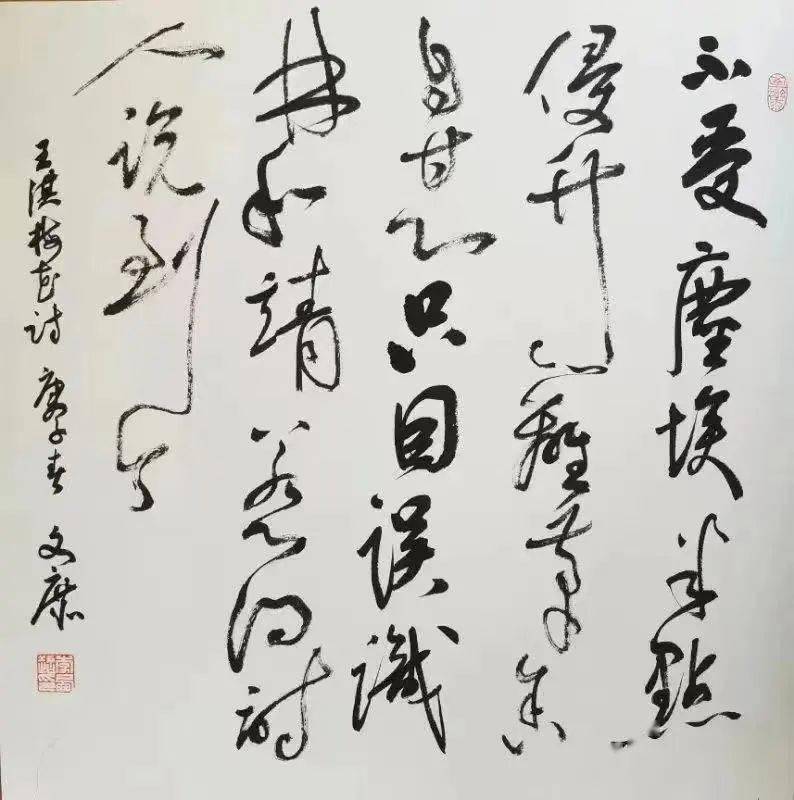 不受塵埃半點
侵竹籬茅舍
自甘心只因误識
林和靖惹得詩
人说到今
王淇梅花诗 庚子春 文